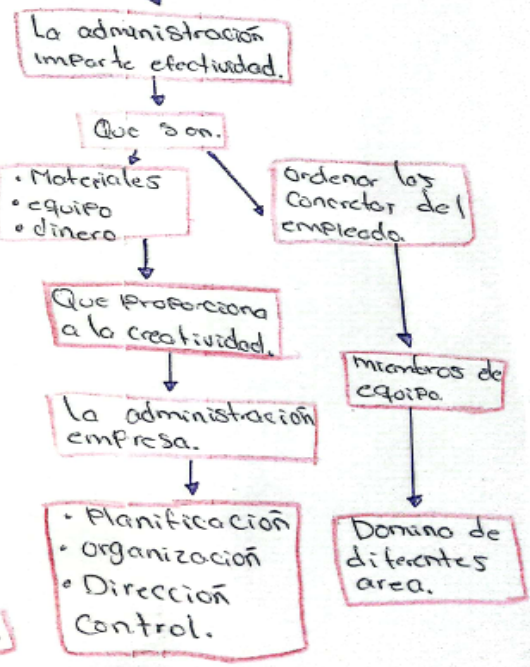 La administración
imparte efectividad.
Que son.
• Materiales
• equipo
• dinero
ordenar los
concretos del
empleado.
Que proporciona
a la creatividad.
miembros de
equipo.
la administración
empresa.
• Planificación
• organización
• Dirección
Control.
Domino de
diferentes
area.